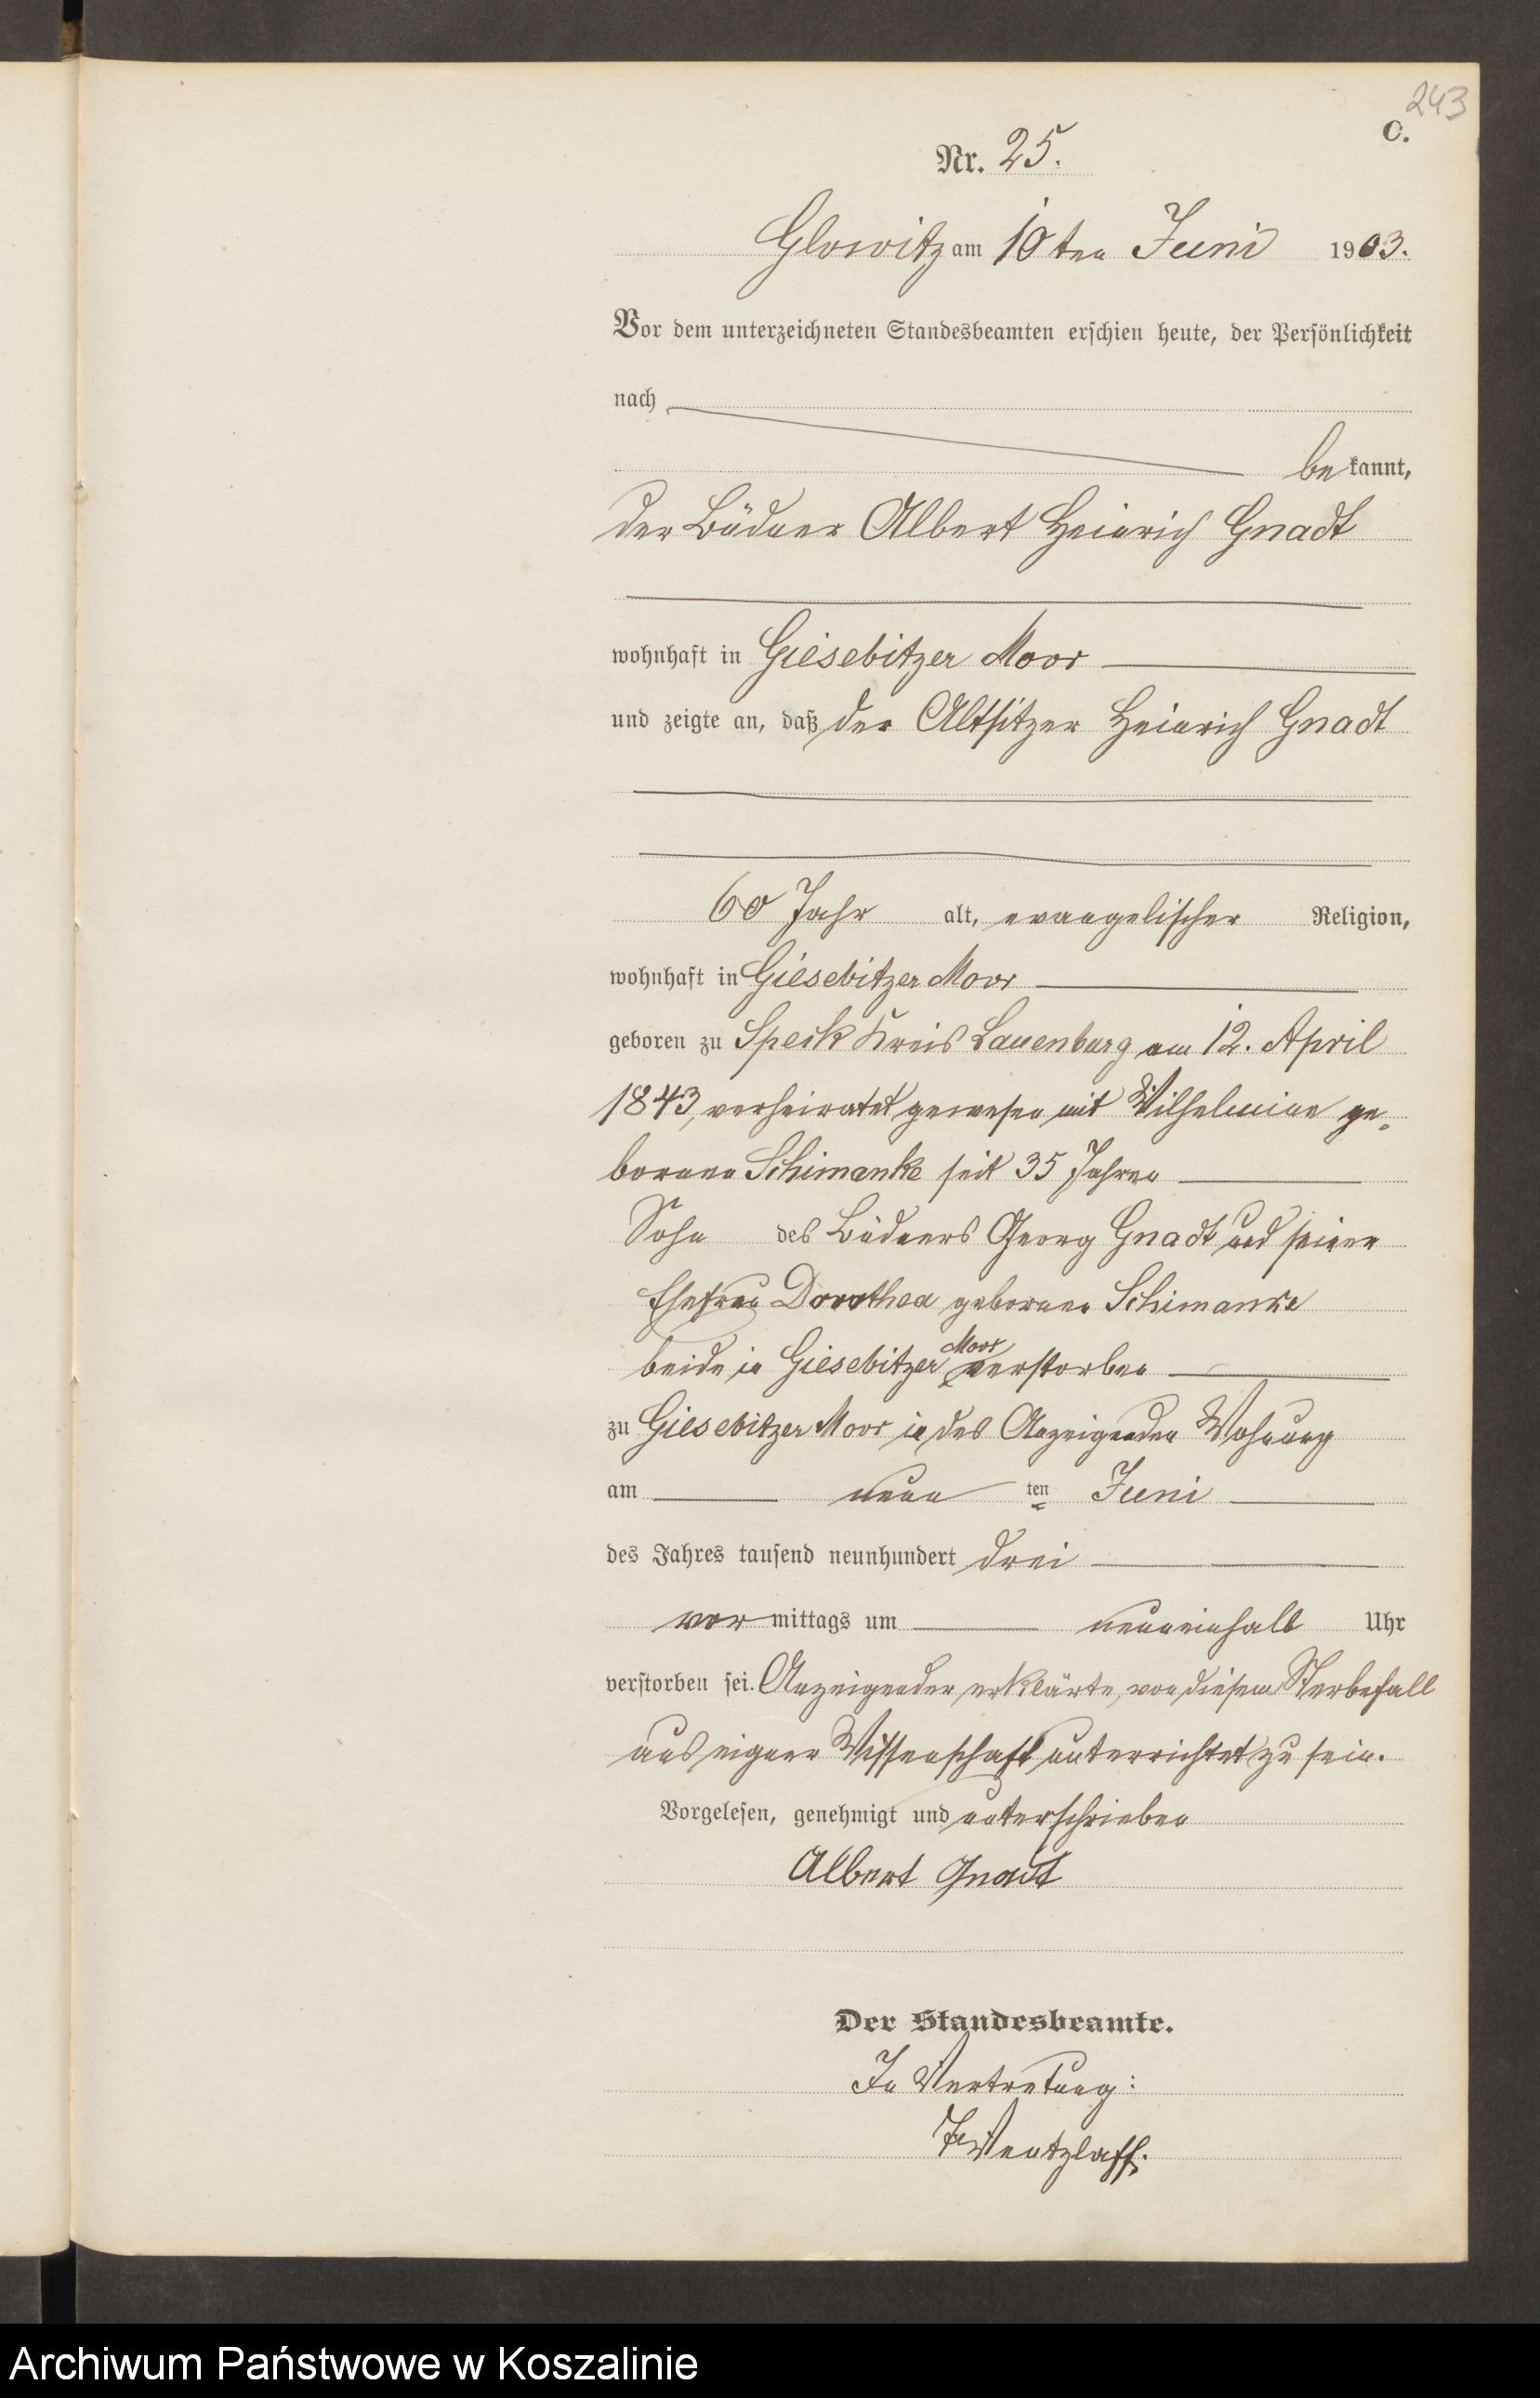 243
C.
Nr. 25.
Glowitz am 10ten Juni 1903.
Vor dem unterzeichneten Standesbeamten erschien heute, der Persönlichkeit
nach
bekannt,
der Büdner Albert Heinrich Gnadt
wohnhaft in Giesebitzer Moor
und zeigte an, daß der Altsitzer Heinrich Gnadt
60 Jahr alt, evangelischer Religion,
wohnhaft in Giesebitzer Moor
geboren zu Speck Kreis Lauenburg am 12. April
1843, verheiratet gewesen mit Wilhelmine ge-
borenen Schimanke seit 35 Jahren
Sohn des Büdners Georg Gnadt und seiner
Ehefrau Dorothea geborenen Schimanke
beide in Giesebitzer Moor verstorben
zu Giesebitzer Moor in des Anzeigenden Wohnung
am neun ten Juni
des Jahres tausend neunhundert drei
vormittags um neuneinhalb Uhr
verstorben sei. Anzeigender erklärte, von diesem Sterbefall
aus eigner Wissenschaft unterrichtet zu sein.
Vorgelesen, genehmigt und unterschrieben
Albert Gnadt
Der Standesbeamte.
In Vertretung:
Wentzlaff.
Archiwum Państwowe w Koszalinie